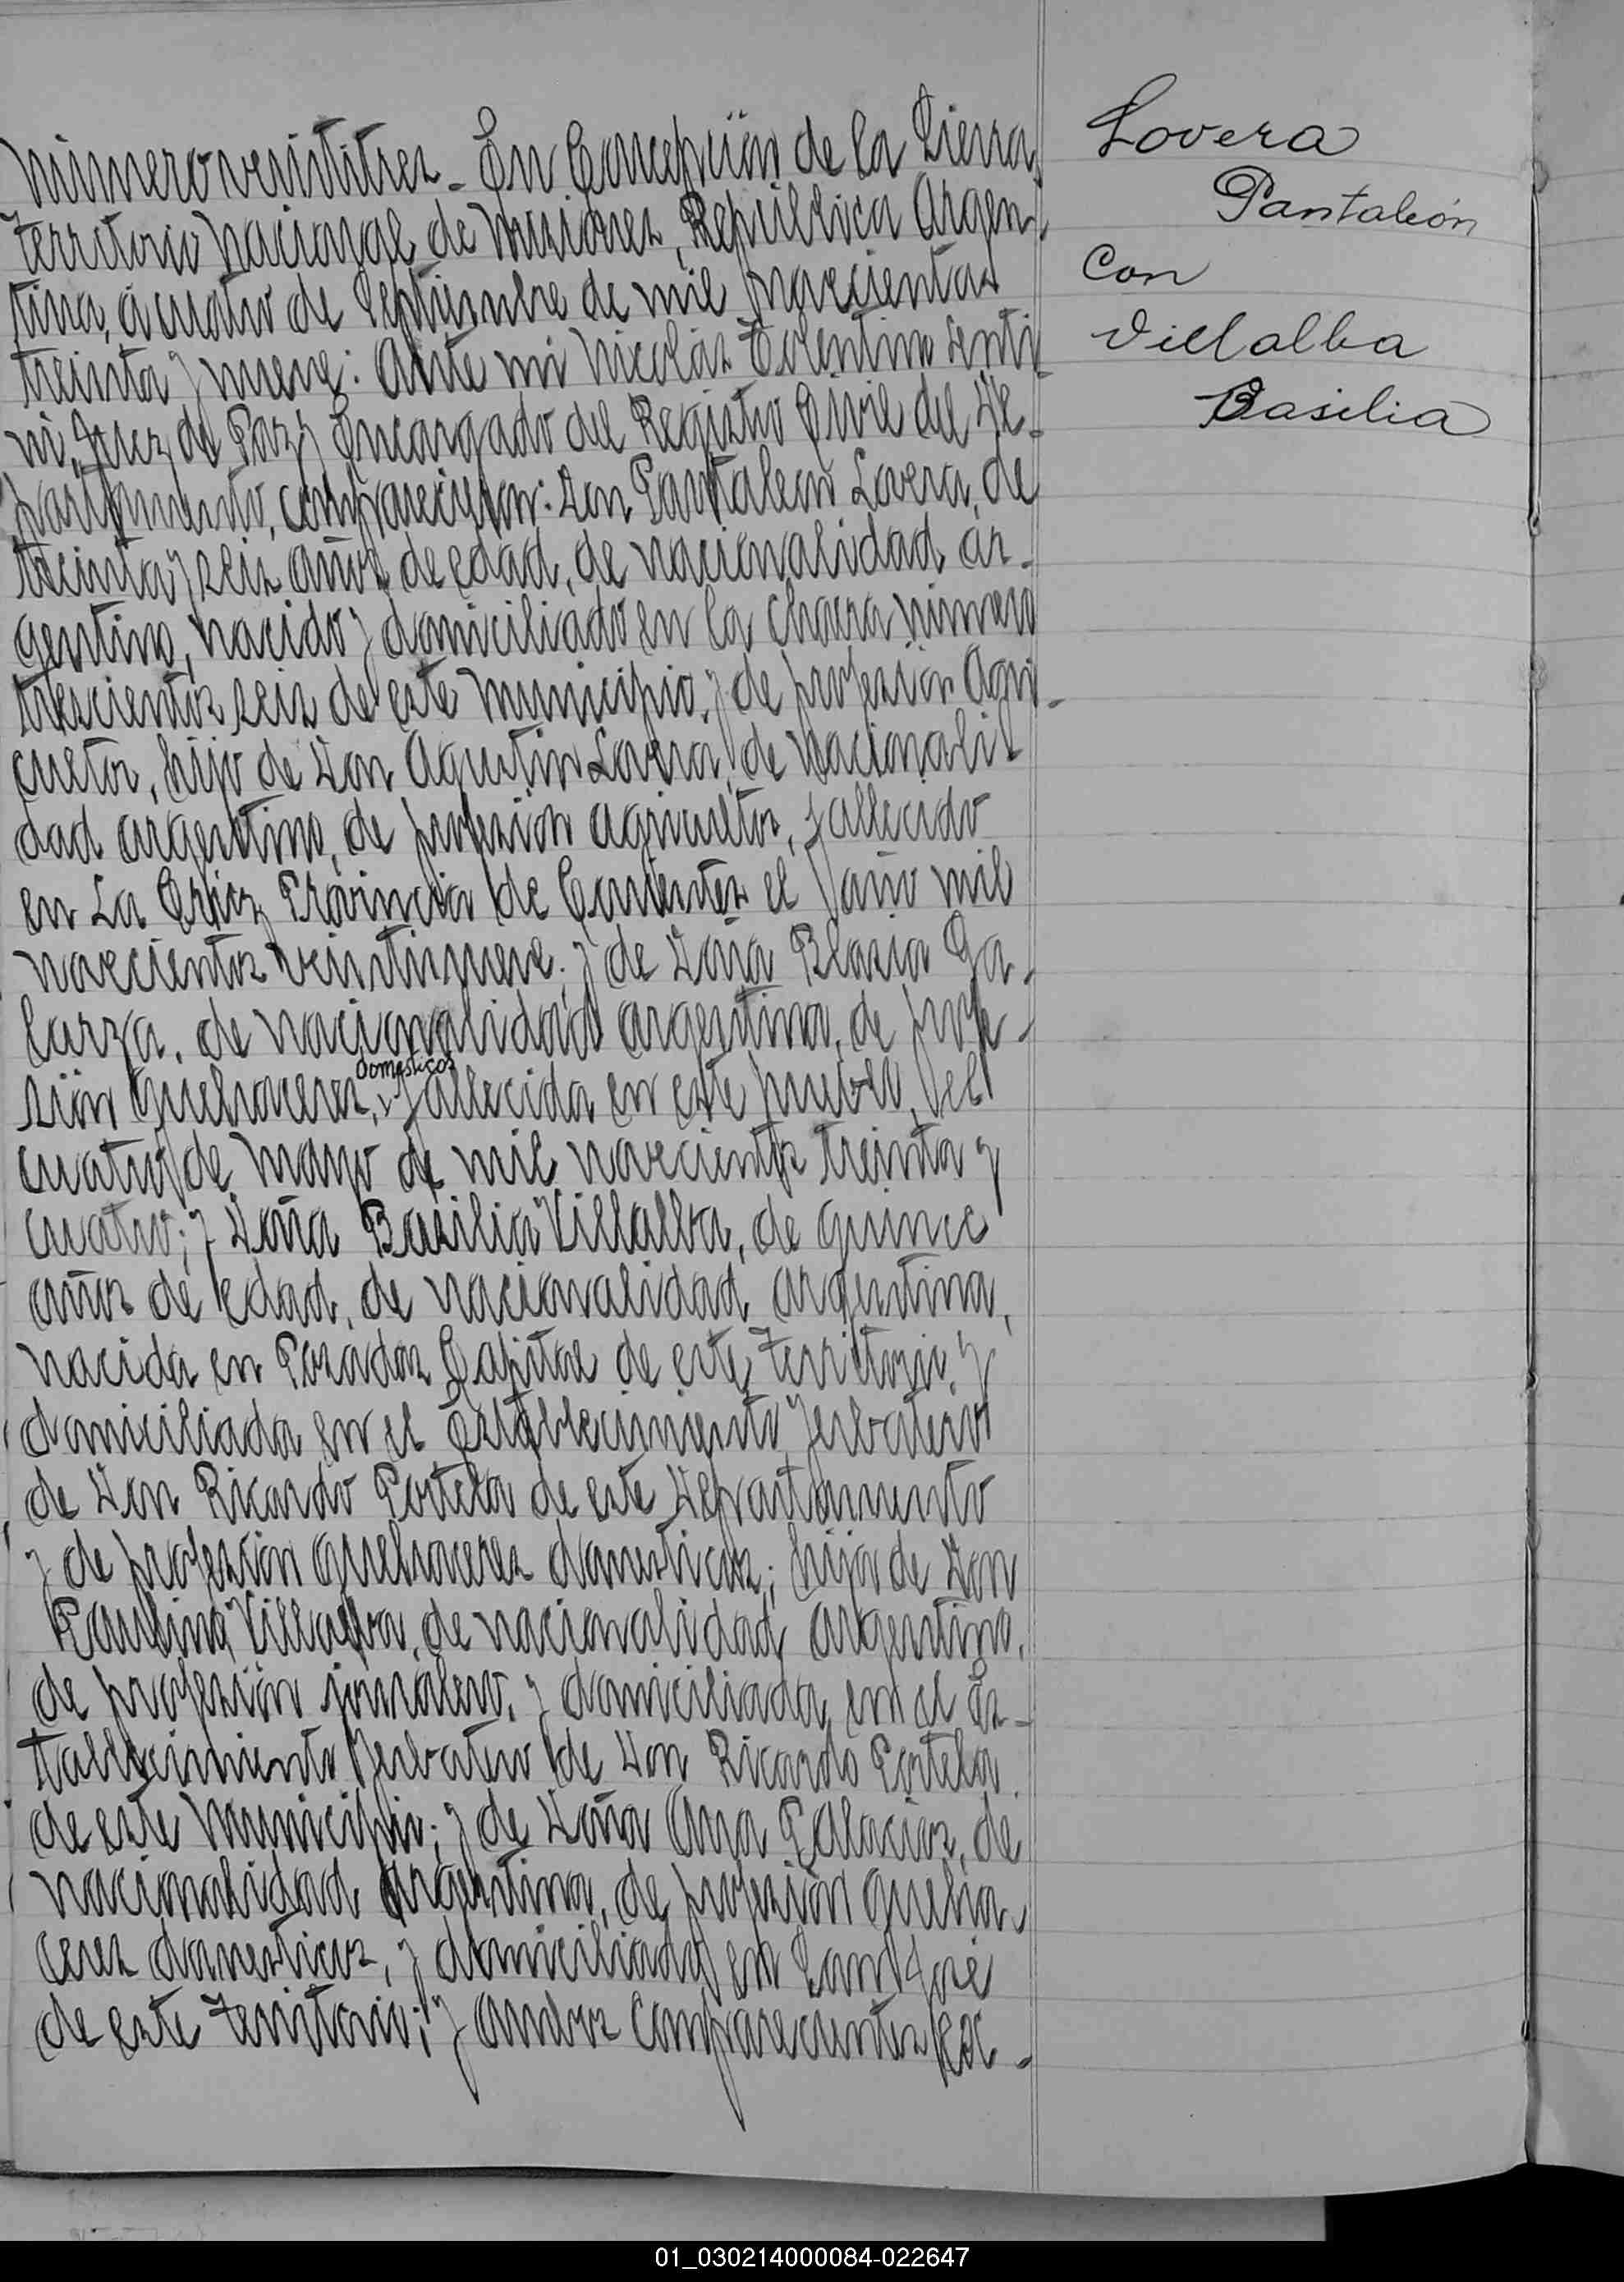 Número veintitres - En Concepción de la Sierra,
Territorio Nacional de Misiones, República Argen-
tina, á cuatro de Septiembre de mil novecientos
treinta y nueve: Ante mi Nicolás Tolentino
Juez de Paz y Encargado del Registro Civil del De-
partamento, comparecieron: Don Pantaleon Lovera, de
treinta y seis años de edad, de nacionalidad ar-
gentino, nacido y domiciliado en la chacra número
trescientos seis de este Municipio, y de profesión Agri-
cultor, hijo de Don Agustin Lovera, de nacionali-
dad argentino, de profesión agricultor, fallecido
en La Cruz Provincia de Corrientes el año mil
novecientos veintinueve; y de Doña Blasia Ga-
larza, de nacionalidad argentina, de profe-
sión quehaceres, domesticos fallecida en este pueblo, el
cuatro de Mayo de mil novecientos treinta y
cuatro; y Doña Basilia Villalba, de quince
años de edad, de nacionalidad argentina,
nacida en Posadas Capital de este Territorio, y
domiciliada en el Establecimiento Yerbatero
de Don Ricardo Portela de este Departamento
y de profesión quehaceres domesticos; hija de Don
Paulino Villalba, de nacionalidad argentino,
de profesión jornalero, y domiciliado en el Es-
tablecimiento Yerbatero de Don Ricardo Portela
de este Municipio; y de Doña Ana Palacios, de
nacionalidad argentina, de profesión queha-
ceres domesticos, y domiciliada en San José
de este Territorio; y ambos comparecientes
Lovera
Pantaleón
Con
Villalba
Basilia
01_030214000084-022647